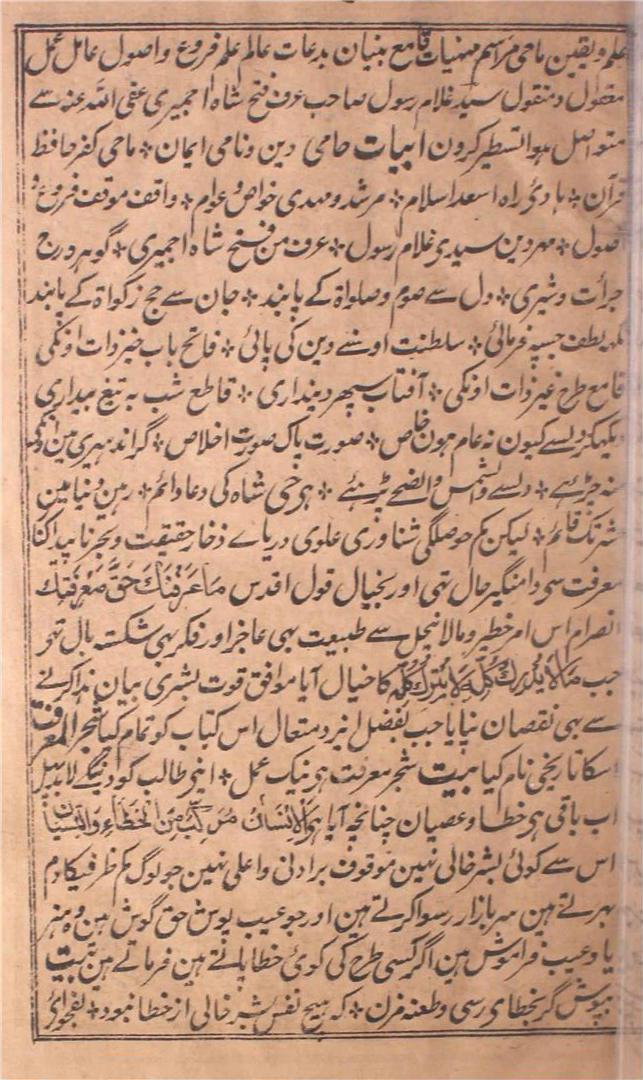 علم ویقین ماحی مراسم منہیات قامع بنیان بدعات عالم علم فروع واصول عامل عمل
معقول ومنقول سید غلام رسول صاحب عرف فتح شاہ اجمیری عفی اللہ عنہ سے
متواصل ہوا تسطیر کرون ابیات حامی دین ونامی ایمان * ماحی کفر حافظ
قرآن * ہادئ راہ اسعد اسلام * مرشد ومہدی خواص وعوام * واقف موقف فروع و
اصول * مہر دین سیدی غلام رسول * عرف من فتح شاہ اجمیری * گوہر درج
جرأت وشیری * دل سے صوم وصلواۃ کے پابند * جان سے حج زکواۃ کے پابند
لطف حسبہ فرمائی * سلطنت اونسے دین کی پائی * فاتح باب خیر ذات اونکی
قامع طرح غیر ذات اونکی * آفتاب سپہر دینداری * قاطع شب بہ تیغ بیداری
دیکھکر ویسے کیون نہ عام ہون خاص * صورت پاک صورت اخلاص *
والشمس والضحے پڑہئے * ہو حی شاہ کی دعا دائم * رہین دنیا مین
حشر تک قائم * لیکن کم حوصلگی شناوری علوی دریاے ذخار حقیقت وبحر ناپیدا کنار
معرفت سی دامنگیر حال تہی اور بخیال قول اقدس مَا عَرَفْنَاكَ حَقَّ مَعْرِفَتِكَ
انصرام اس امر خطیر ومالاینحل سے طبیعت بہی عاجز اور فکر بہی شکستہ بال تہی
جب مَالَا يُدْرَكُ كُلُّهٗ لَا يُتْرَكُ كُلُّهٗ کا خیال آیا موافق قوت بشری بیان نہ کرنے
سے بہی نقصان پایا جب بفضل ایزد متعال اس کتاب کو تمام کیا شجر المعرفت
اسکا تاریخی نام کیا بیت شجر معرفت ہو نیک عمل * اپنی طالب کو دیگے لابد پہل
اب باقی ہی خطا وعصیان چنانچہ آیا ہی اَلْاِنْسَانُ مُرَكَّبٌ مِنَ الْخَطَاءِ وَالنِّسْيَانِ
اس سے کوئی بشر خالی نہین موقوف بر ادنی واعلی نہین جو لوگ کم ظرفیکا دم
بہرتے ہین سر بازار رسوا کرتے ہین اور جو عیب پوش حق گوش ہین وہ ہنر
یاد وعیب فراموش ہین اگر کسی طرح کی کوئی خطا پاتے ہین فرماتے ہین بیت
بپوش گر بخطای رسی وطعنہ مزن * کہ ہیچ نفس بشر خالی از خطا نبود * بفحوائ